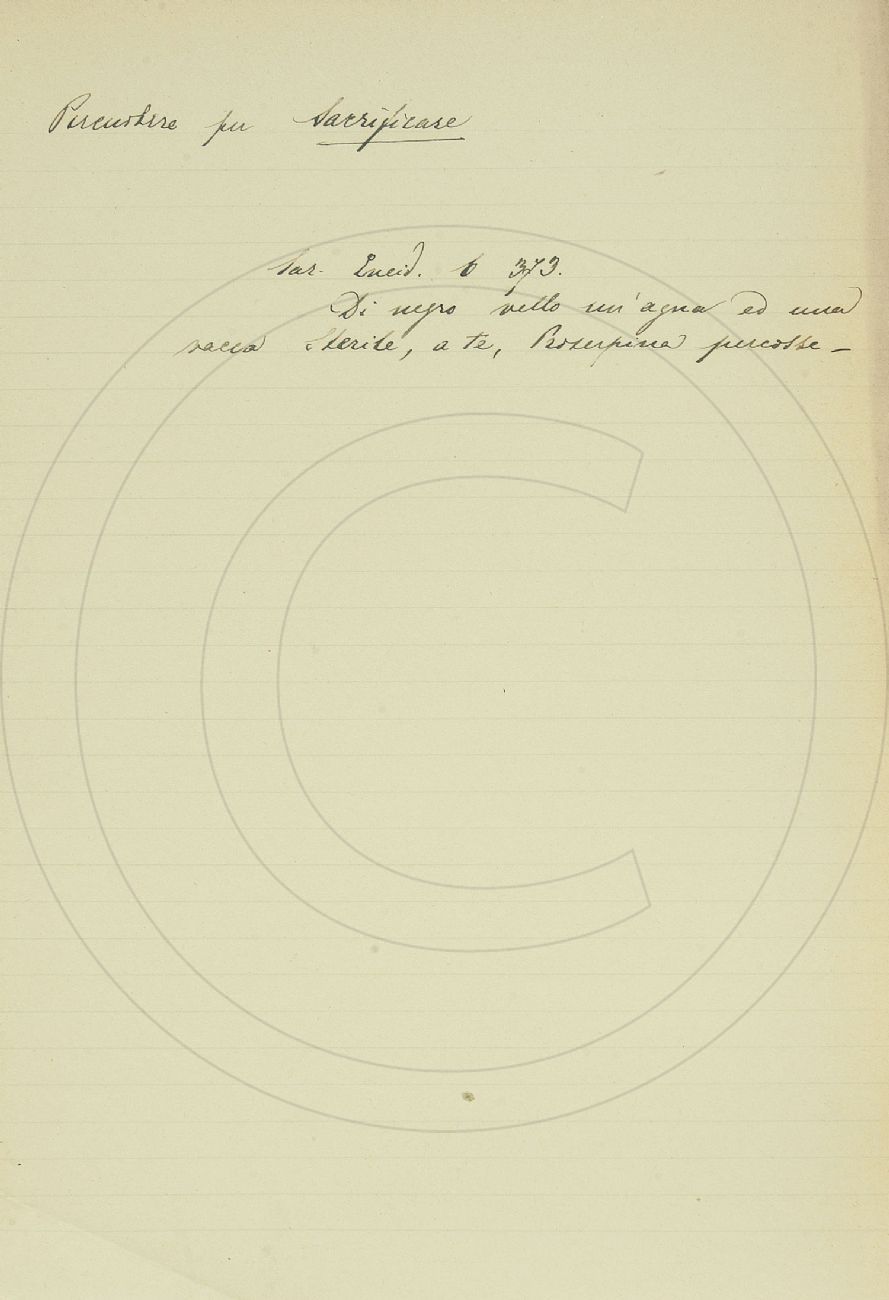 Percuotere per Sacrificare
Car. Eneid. 6 373.
Di negro vello un'agna ed una
vacca sterile, a te, Proserpina percosse –